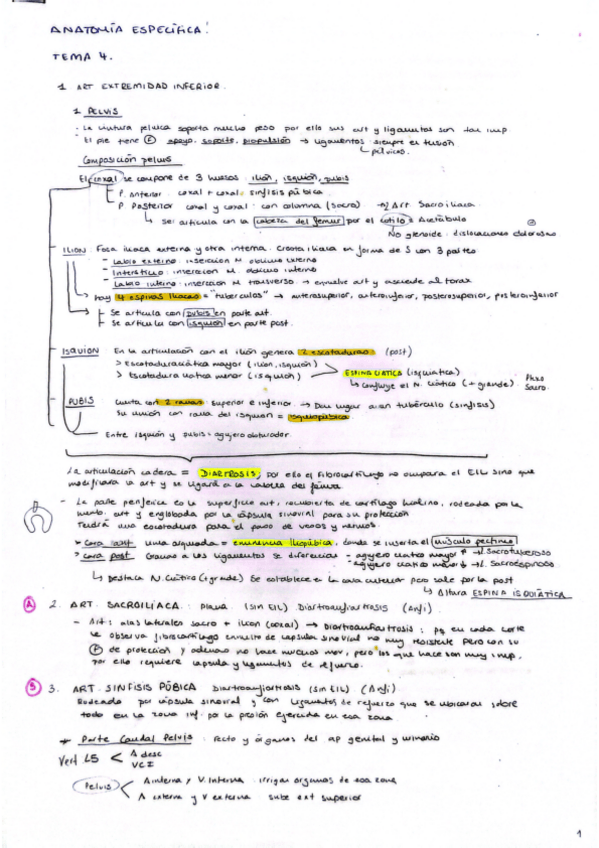 ANATOMÍA ESPECÍFICA:
TEMA 4.
1. ART EXTREMIDAD INFERIOR.
1. PELVIS
- La cintura pelvica soporta mucho peso por ello sus art y ligamentos son tan imp
- El pie tiene (F) apoyo, soporte, propulsión → ligamentos siempre en tensión
↳ pélvicos
Composición pelvis
El coxal se compone de 3 huesos: ilión, isquión, pubis
P. Anterior: coxal + coxal: sínfisis púbica
P Posterior coxal y coxal: con columna (sacro) → Art. Sacroiliaca
↳ se articula con la cabeza del femur por el cotilo = Acetábulo
No glenoide: dislocaciones
ILION: Fosa iliaca externa y otra interna. Cresta iliaca en forma de S con 3 partes
- Labio externo: inserción M. oblicuo externo
- Intersticio: inserción M. oblicuo interno
- Labio interno: inserción M. transverso → envuelve art y asciende al torax
↳ hay 4 espinas iliacas = "tuberculos" → anterosuperior, anteroinferior, posterosuperior, posteroinferior
- Se articula con pubis en parte ant.
- Se articula con isquión en parte post.
ISQUION En la articulación con el ilión genera 2 escotaduras (post)
> Escotadura ciática mayor (ilión, isquión)
> Escotadura ciática menor (isquión)
ESPINA CIATICA (isquiatica)
↳ confluye el N. Ciático (+ grande) Plexo Sacro.
PUBIS Cuenta con 2 ramas: superior e inferior → Dan lugar a un tubérculo (sínfisis)
Su unión con rama del isquion = isquiopúbica
Entre isquión y pubis = agujero obturador.
La articulación cadera = DIARTROSIS, por ello el fibrocartílago no ocupara el EIL sino que
modificará la art y se ligará a la cabeza del fémur.
- La parte periferica es la superficie art, recubierta de cartílago hialino, rodeada por la
memb. art y englobada por la cápsula sinovial para su protección
Tendrá una escotadura para el paso de venas y nervios.
* Cara ant una arqueada = eminencia iliopúbica, donde se inserta el músculo pectíneo
> cara post Gracias a los ligamentos se diferencian - agujero ciatico mayor → L. Sacrotuberoso
- agujero ciatico menor → L. Sacroespinoso
↳ Destaca N. Ciático (+ grande) Se establece en la cara anterior pero sale por la post
↳ Altura ESPINA ISQUIÁTICA
2. ART. SACROILÍACA: plana. (sin EIL) Diartroanfiartrosis (Anfi)
- Art: alas laterales sacro + ilion (coxal) → Diartroanfiartrosis: pq en cada corte
se observa fibrocartílago envuelto de capsula sinovial no muy resistente pero con su
(F) de protección y además no hace muchos mov, pero los que hace son muy imp,
por ello requiere capsula y ligamentos de refuerzo.
3. ART. SINFISIS PÚBICA Diartroanfiartrosis (sin EIL) (Anfi)
Rodeado por cápsula sinovial y con ligamentos de refuerzo que se ubicaran sobre
todo en la zona inf. por la presión ejercida en esa zona
* Parte Caudal Pelvis: recto y órganos del ap genital y urinario
Vert L5 < A desc
VCI
Pelvis < A interna y V. Interna: irrigar organos de esa zona
A externa y V externa sube ext superior
1